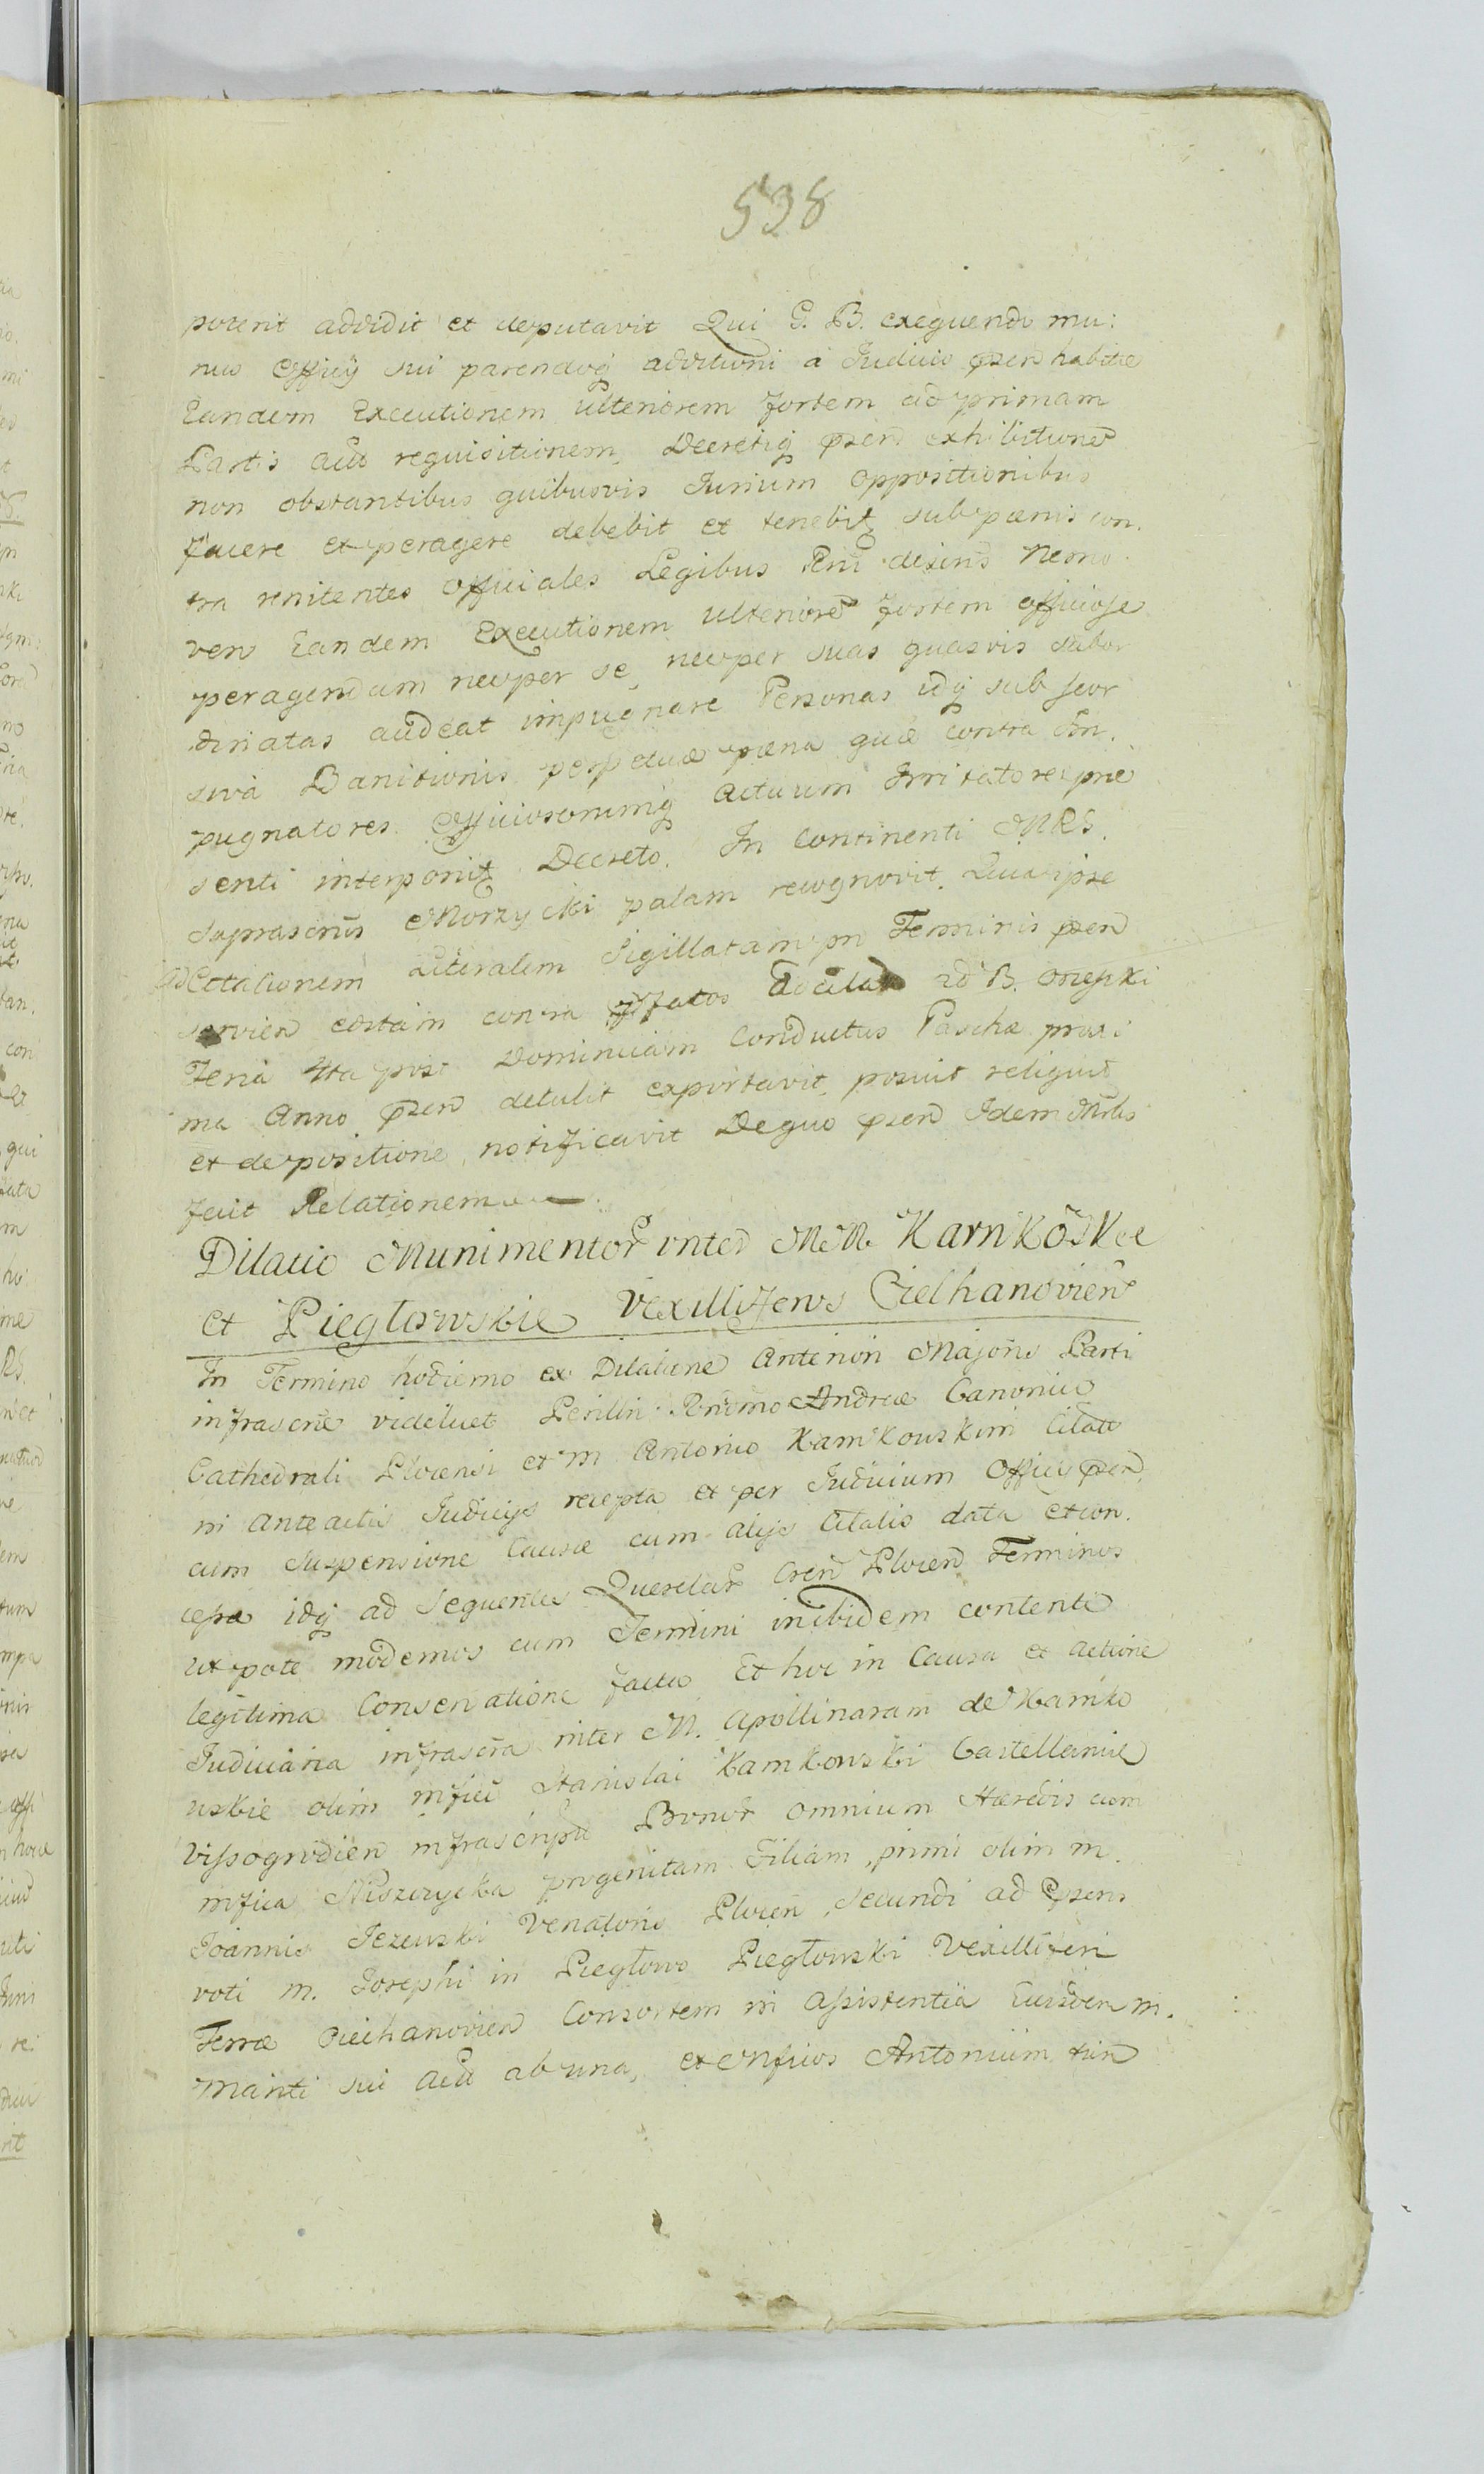 538
poterit addidit et deputavit Qui G. B. exequendo mu:
nus Officij sui parendoq additioni a Judicio pzen habitæ
Eandem Executionem ulteriorem fortem ad primam
Partis Act requisitionem, Decretiq pzen exhibitione
non obstantibus quibusvis Jurium oppositionibus
facere et peragere debebit et tenebit, sub pænis con.
tra renitentes officiales Legibus Rni descris Nemo
vero Eandem Executionem ulteriore fortem officiose
peragendam neoper se, neoper suas quasvis subor
dinatas audeat impugnare Personas idq sub seor
siva Banitionis perpetuæ pæna quæ contra Im.
pugnatores Officiosorumq Actuum Irritatores præ
senti interponit Decreto. In Continenti MRS.
suprascrus Morzycki palam recognovit, Quia ipse
ad Citationem Literalem Sigillatam pn Terminis pzen
servien editam contra pffatos ad B.
Feria 4ta post Dominicam Conductus Paschæ proxi
ma Anno pzen detulit exportavit, posuit reliquit
et depositione notificavit Dequo pzen Idem Mrlis
fecit Relationem
Dilatio Munimentor inter MM. Karnkoskie
et Piegłowskie Vexilliferos Ciechanovien
In Termino hodierno ex Dilatione Anteriori Majoris Parti
infrascræ videlicet Perilli Rndmo Andreæ Canonico
Cathedrali Plocensi et M Antonio Karnkowskim Citato
in Anteactis Judicijs recepta et per Judicium Officij pzen
cum Suspensione Causæ cum alijs Citatis data et con.
cessa idq ad Sequentes Querelar Cren Plocen Terminos
utpote modernos cum Termini inibidem contenti
legitima Conservatione facta Et hoc in Causa et Actione
Judiciaria infrascra inter M. Apollinaram de Karnko
wskie olim mfici Stanislai Karnkowski Castellani
Vissogrodien infrascript Bonor omnium Hæredis cum
mfica Niszczycka progenitam Filiam, primi olim M.
Joannis Jezewski Venatoris Plocen, secundi ad pzens
voti M. Josephi in Piegłowo Piegłowski Vexilliferi
Terræ Ciechanovien Consortem in Assistentia Eiusdem M.
Mariti sui Act ab una, et Mficos Antonium tum